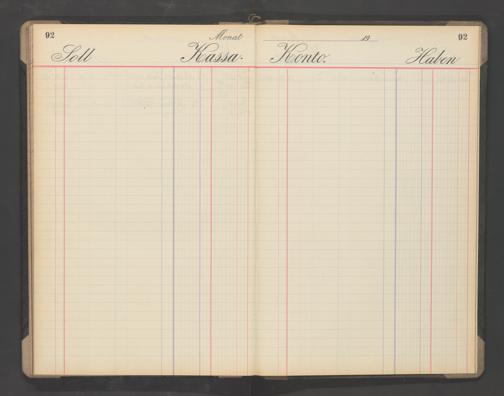 92 Monat 19 92
Soll Kassa- Konto. Haben